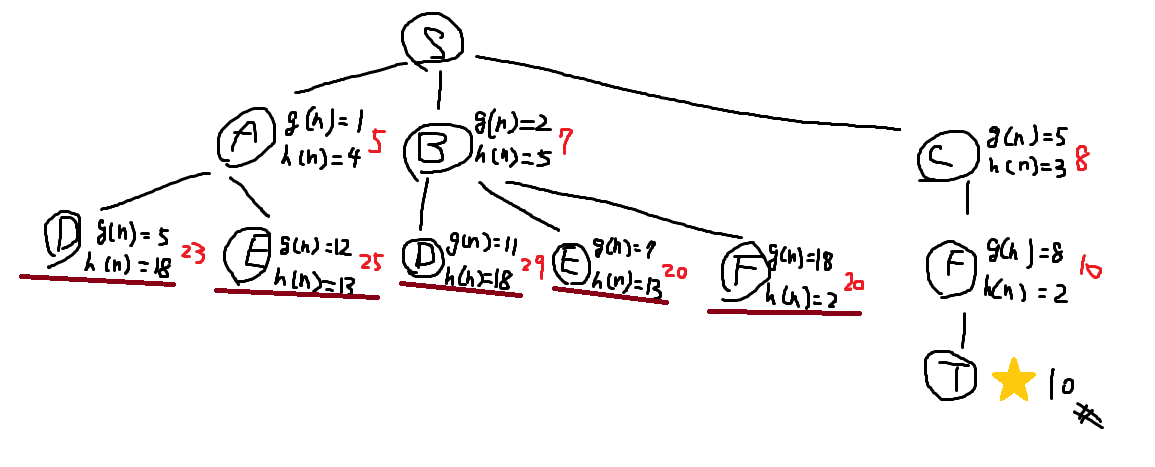 S
A
g(n)=1
h(n)=4
5
B
g(n)=2
h(n)=5
7
C
g(n)=5
h(n)=3
8
D
g(n)=5
h(n)=18
23
E
g(n)=12
h(n)=13
25
D
g(n)=11
h(n)=18
29
E
g(n)=7
h(n)=13
20
F
g(n)=18
h(n)=2
20
F
g(n)=8
h(n)=2
10
T
10
#